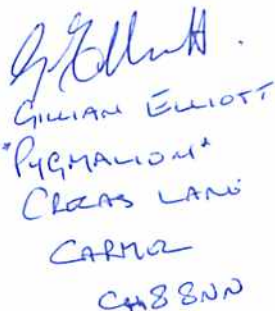 G Elliott.
GILLIAN ELLIOTT
"PYGMALION"
LANE
CARMEL
CH8 8NN